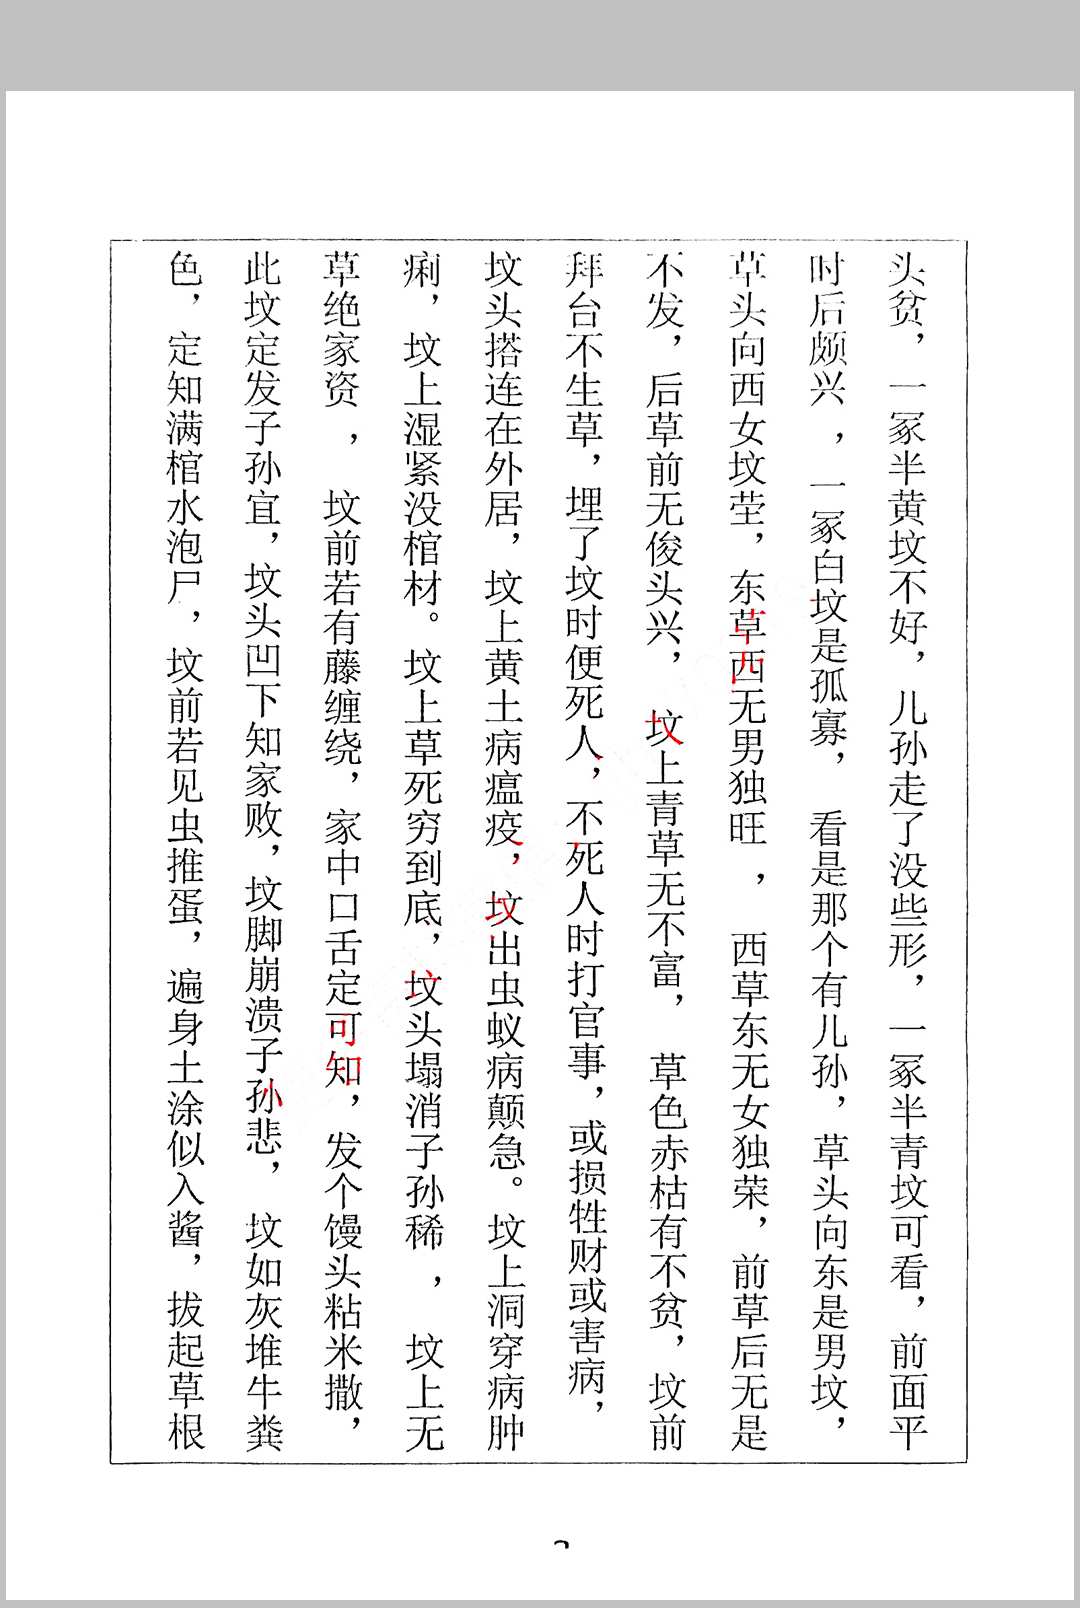 头贫，一冢半黄坟不好，儿孙走了没些形，一冢半青坟可看，前面平
时后颇兴，一冢白坟是孤寡，看是那个有儿孙，草头向东是男坟，
草头向西女坟茔，东草西无男独旺，西草东无女独荣，前草后无是
不发，后草前无俊头兴，坟上青草无不富，草色赤枯有不贫，坟前
拜台不生草，埋了坟时便死人，不死人时打官事，或损牲财或害病，
坟头搭连在外居，坟上黄土病瘟疫，坟出虫蚁病颠急。坟上洞穿病肿
痢，坟上湿紧没棺材。坟上草死穷到底，坟头塌消子孙稀，坟上无
草绝家资，坟前若有藤缠绕，家中口舌定可知，发个馒头粘米撒，
此坟定发子孙宜，坟头凹下知家败，坟脚崩溃子孙悲，坟如灰堆牛粪
色，定知满棺水泡尸，坟前若见虫推蛋，遍身土涂似入酱，拔起草根